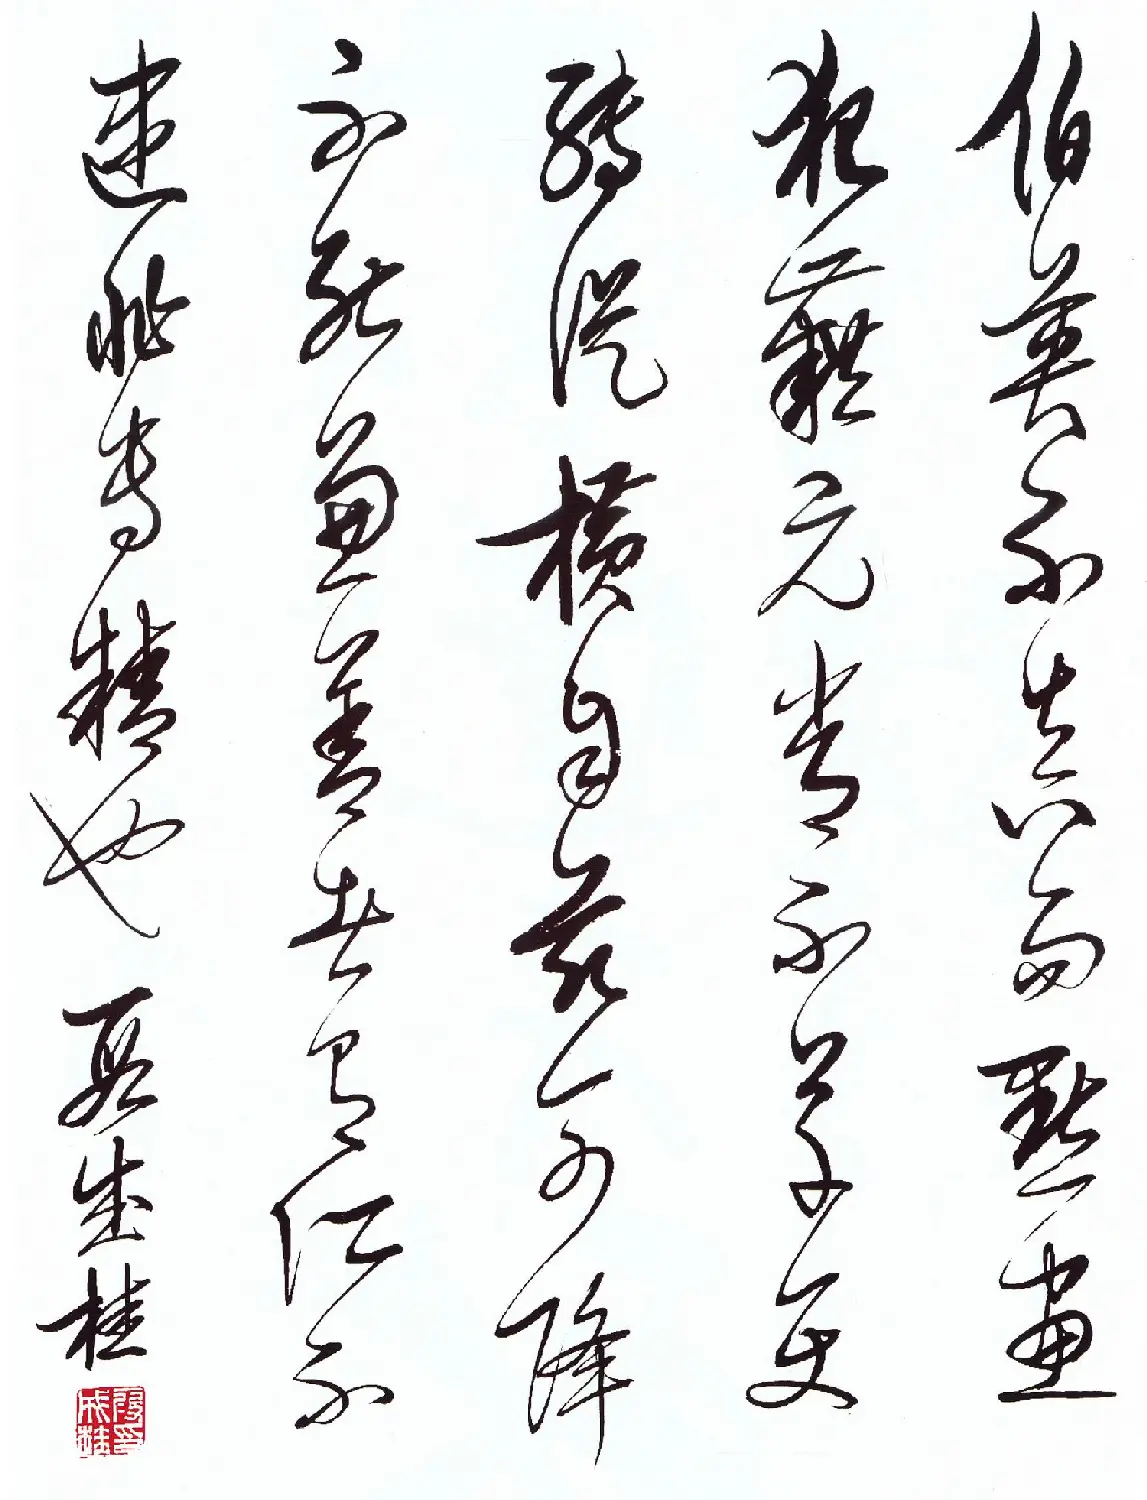 伯英不真而點畫
狼藉元常不草使
轉從橫自茲已降
不能兼善者有所不
逮非專精也 段成桂
段印成桂